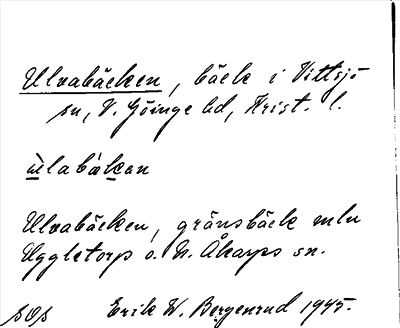 Ulvabäcken, bäck i Vittsjö
sn, V. Göinge hd, Krist. l.
ùlabák̲an
Ulvabäcken, gränsbäck mln
Uggletorp o. N. Åkarps sn.
Erik W. Bergenrud 1945.